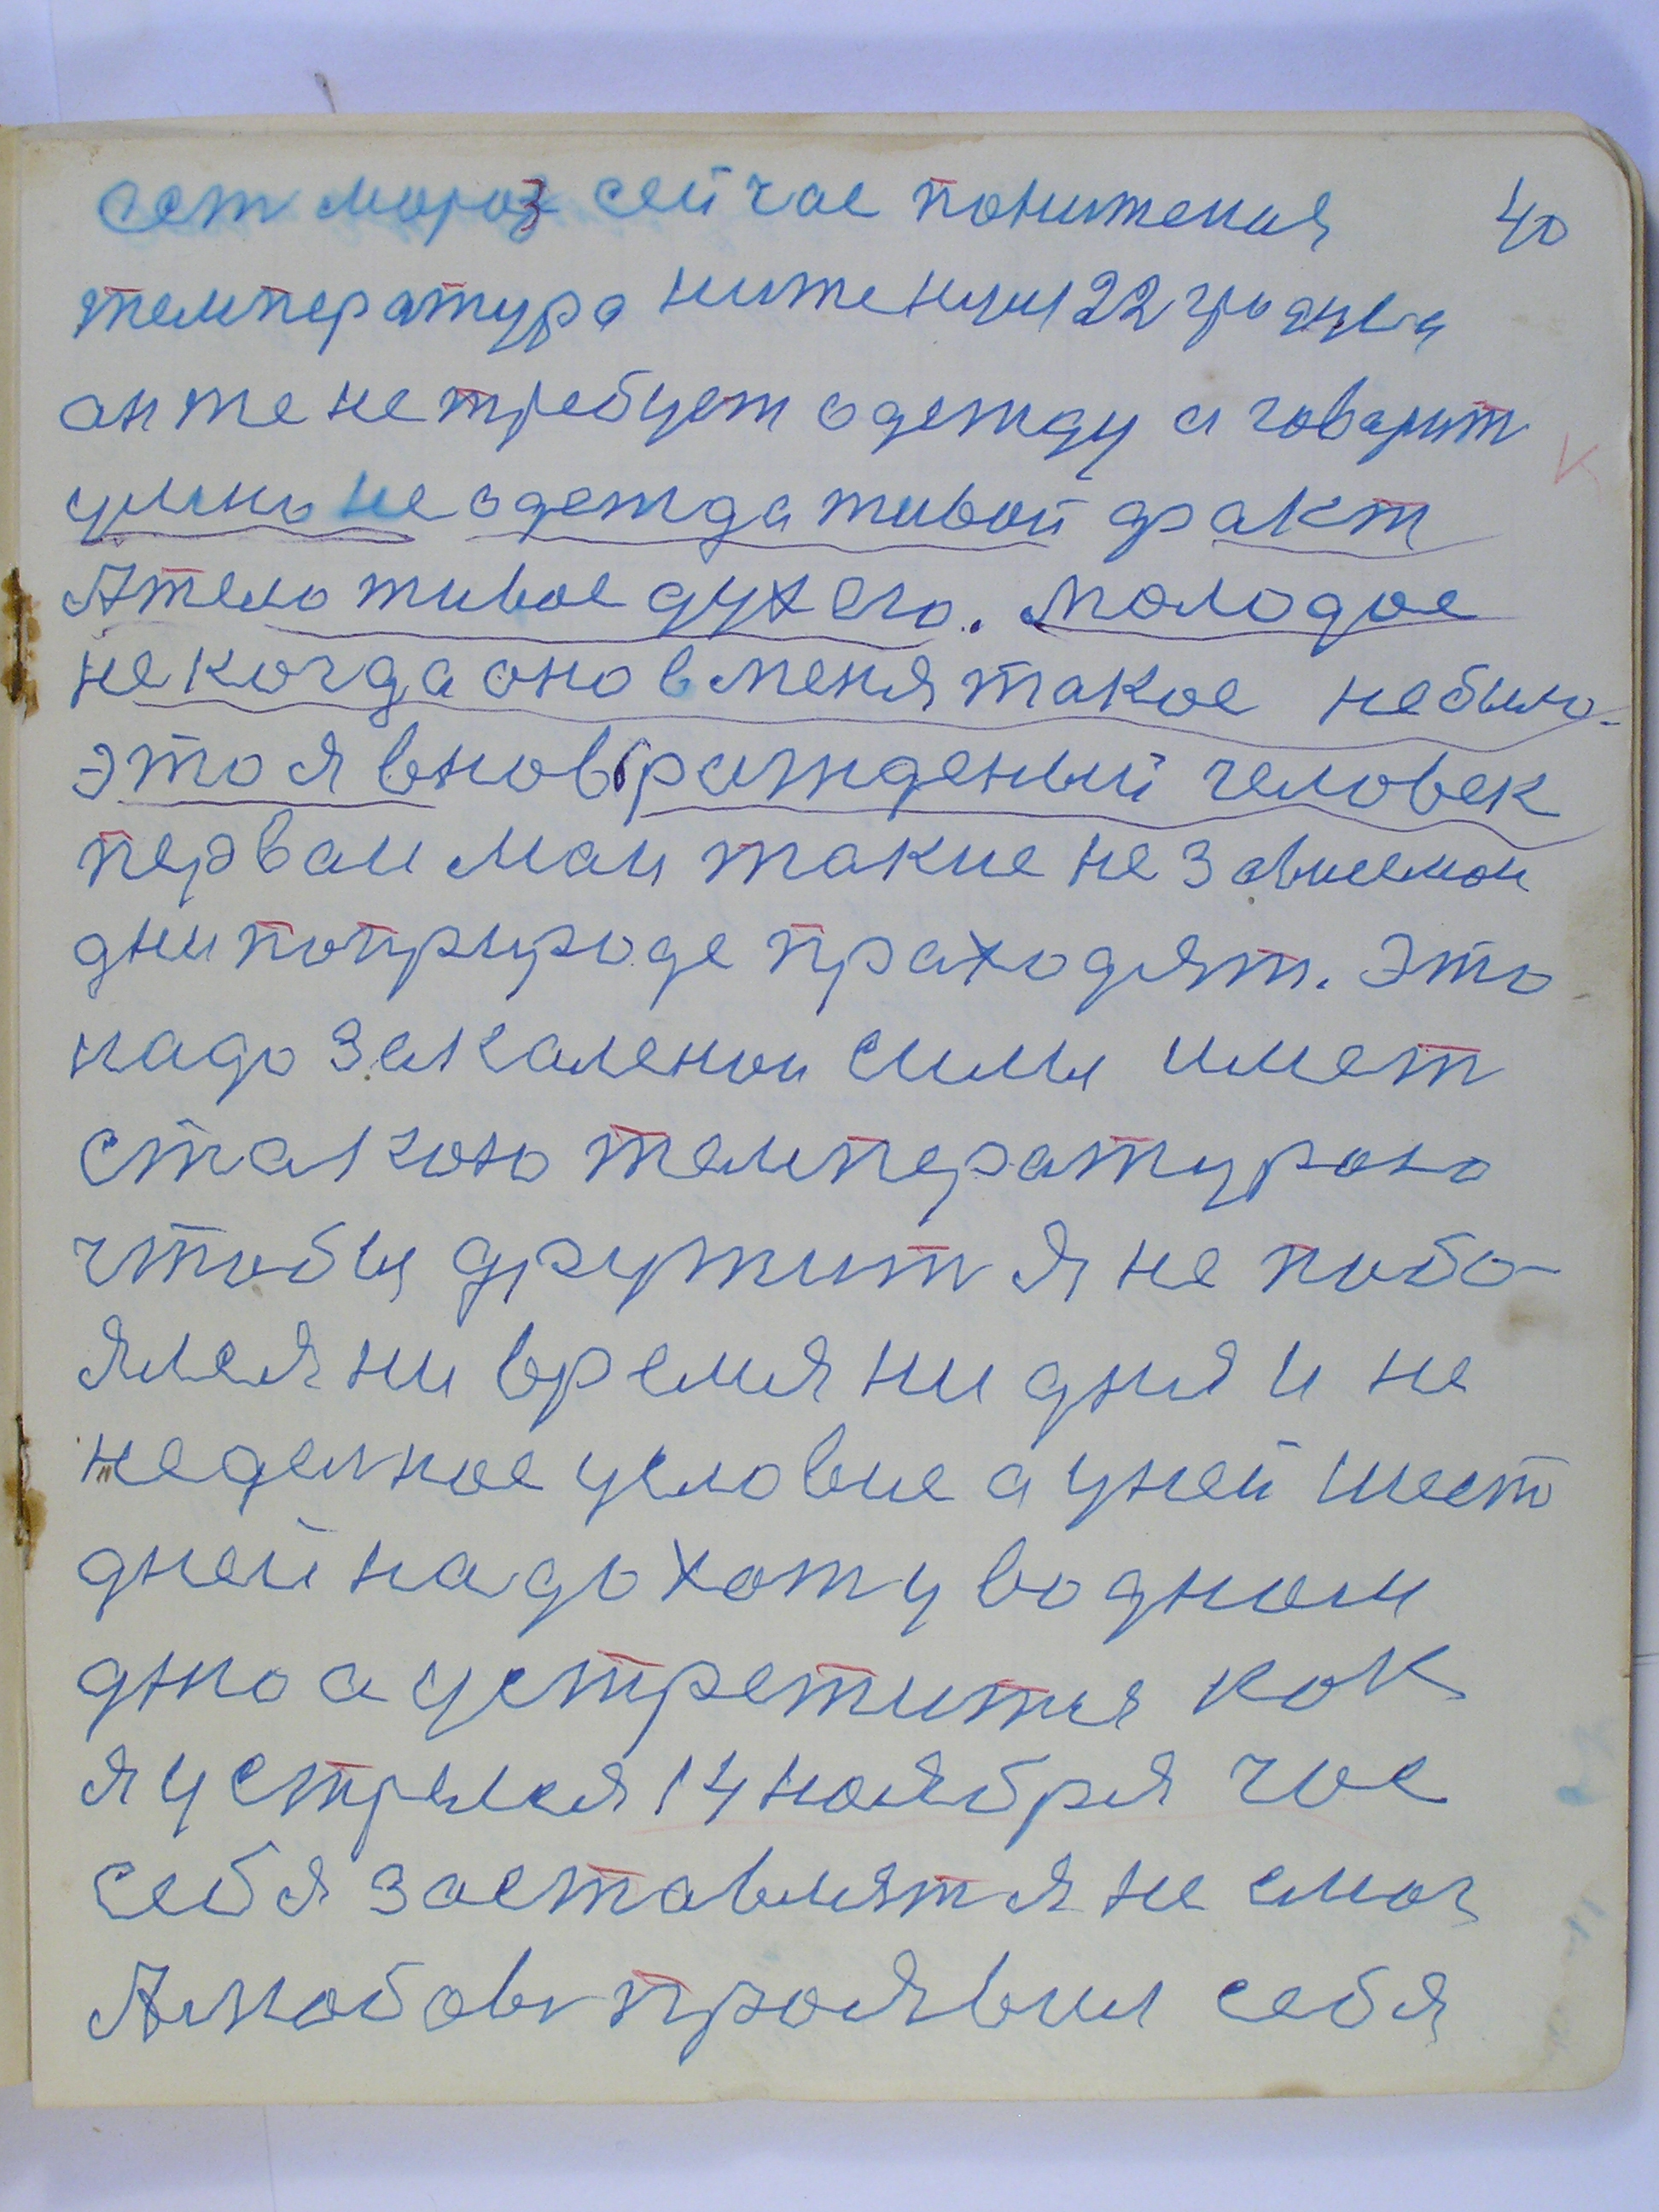 сет мороз сейчас понитеная 40
температура ниже нуля 22 градуса
он же не требует одежду а говарит
умно не одежда живой факт
А тело живое дух его. молодое
не когда оно в меня такое небыло.
это я вновь ражденый человек
первам маи такие не зависемаи
дни по природе праходят. Это
надо закаленаи силы имет
с такою температураю
чтобы дружит я не побо-
ялся ни время ни дня и не
неделное условие а у ней шест
дней надо хоту во дном
дню а устретится как
я устрелся 14 ноября час
себя заставлят я не смог
А любовь проявил себя